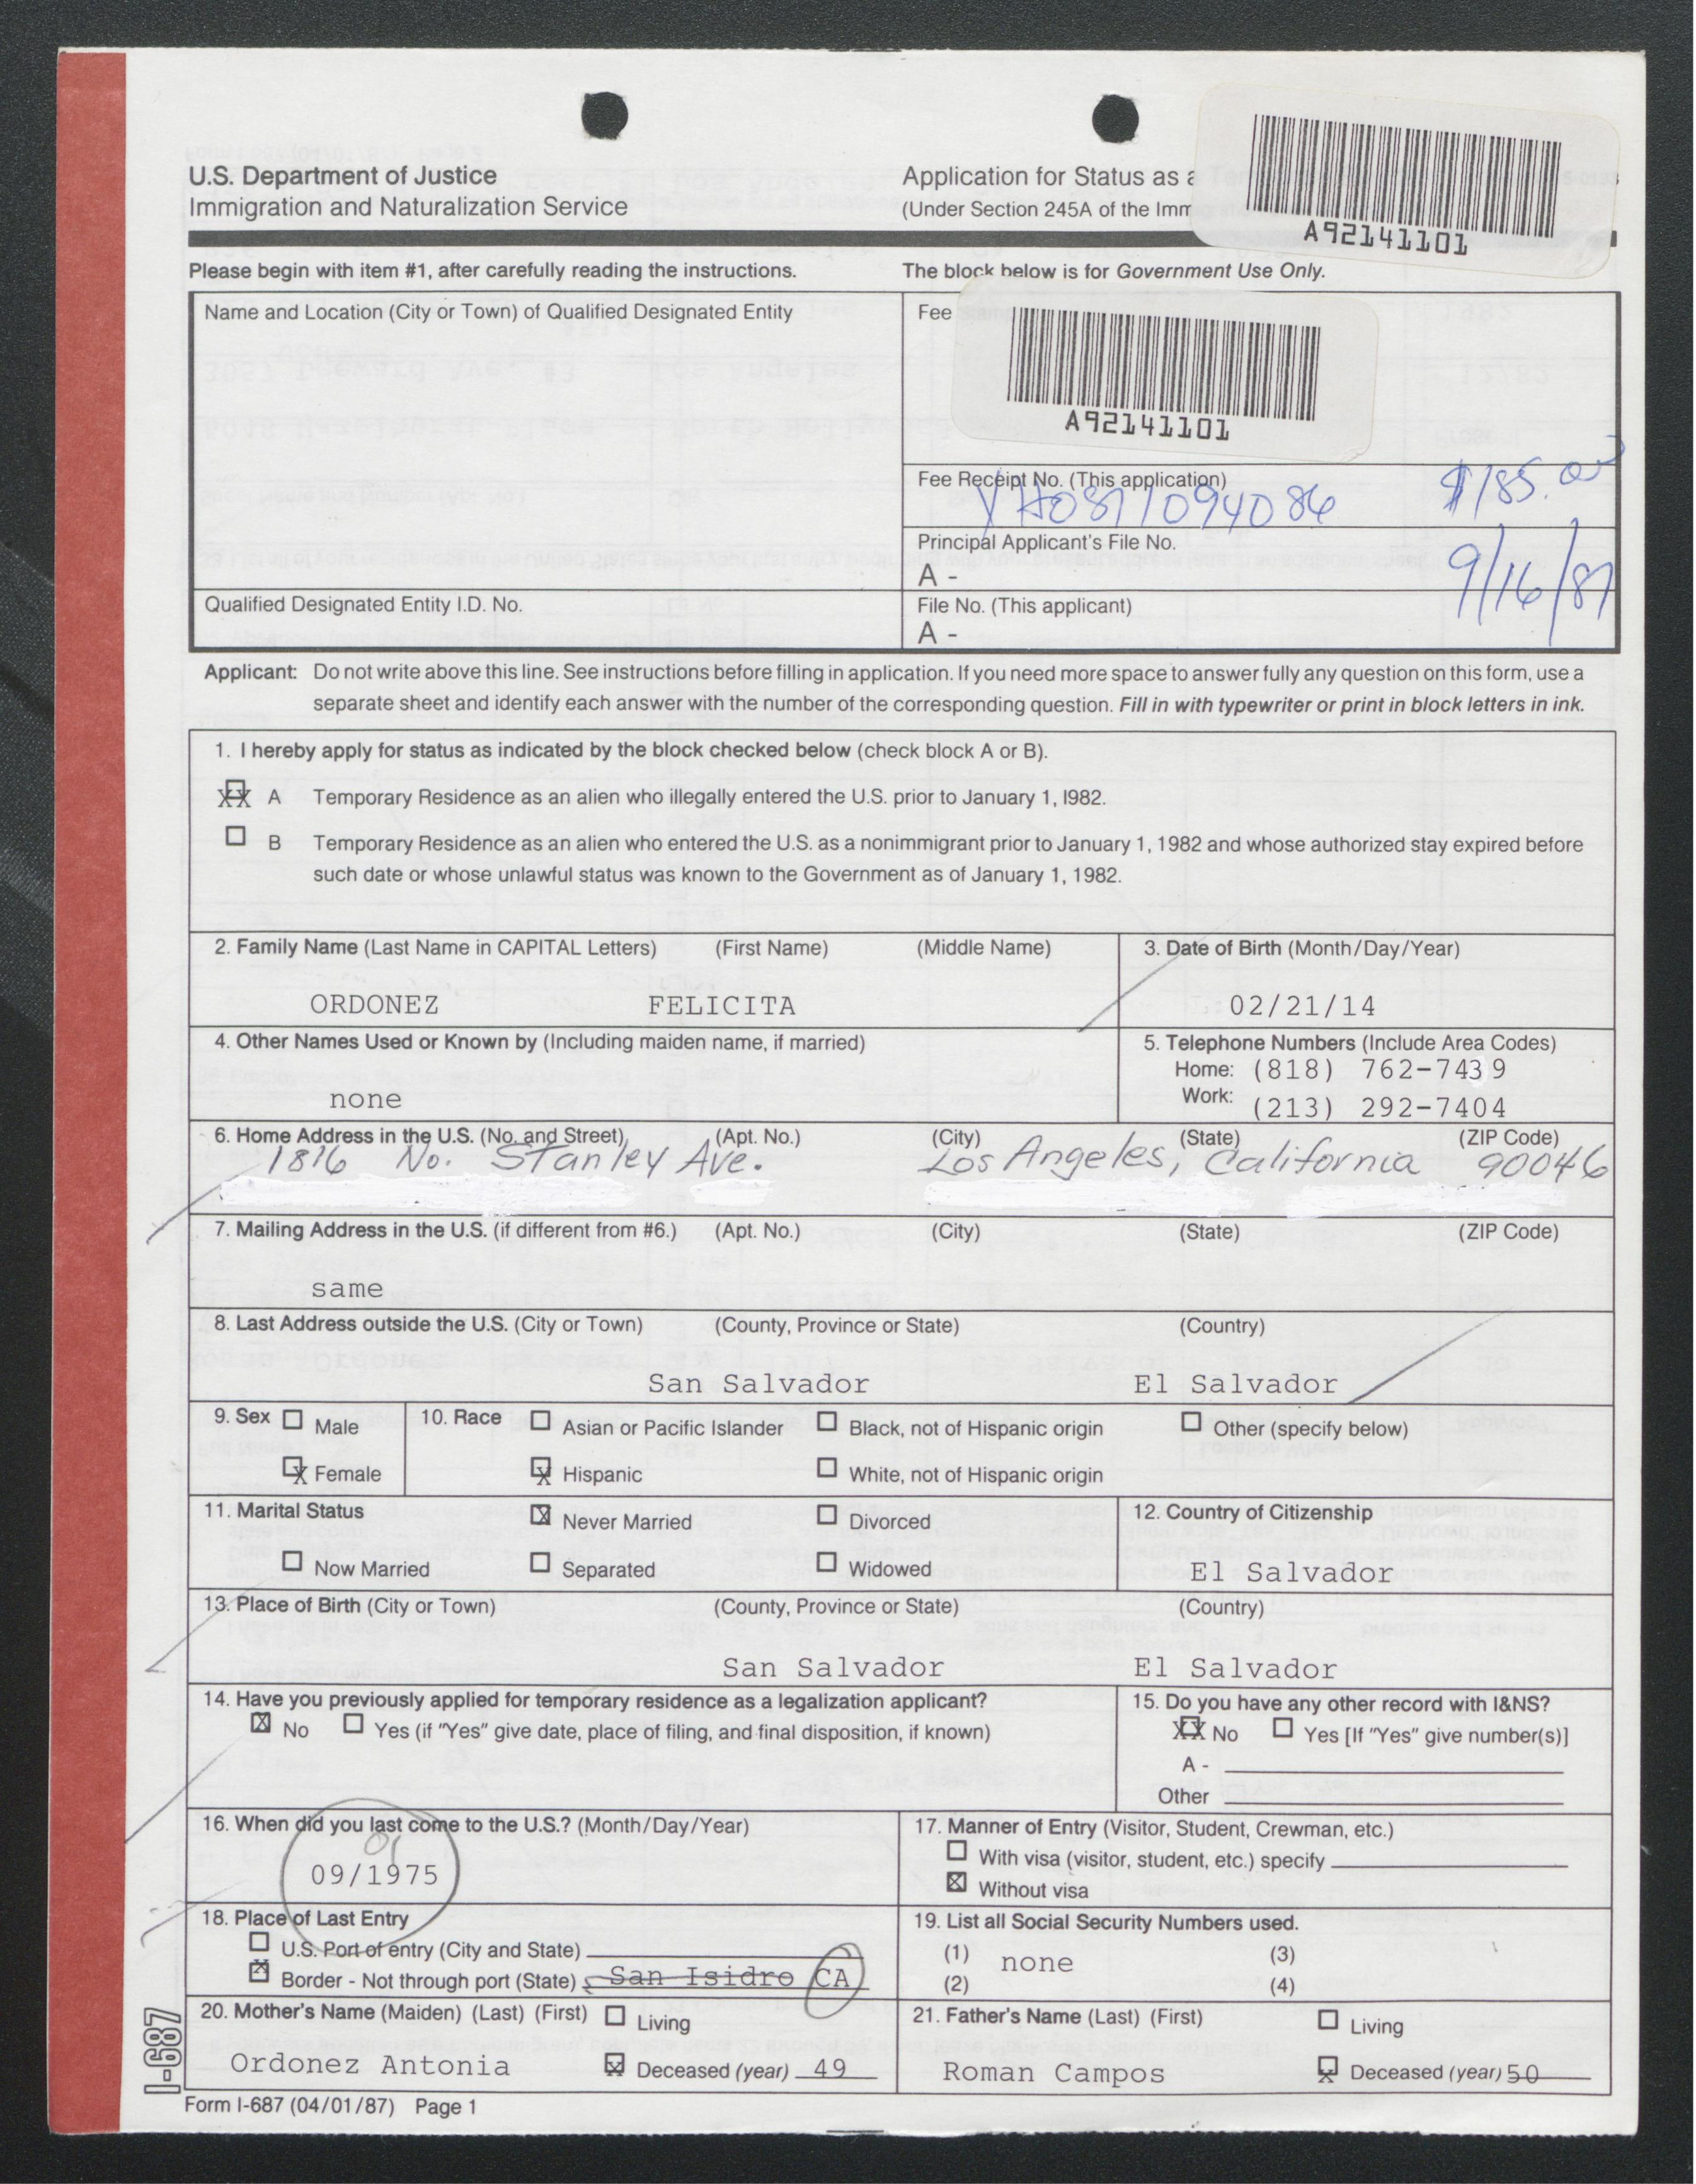 U.S. Department of Justice
Immigration and Naturalization Service
Application for Status as a
(Under Section 245A of the Imm
A92141101
Please begin with item #1, after carefully reading the instructions.
The block below is for Government Use Only.
Name and Location (City or Town) of Qualified Designated Entity
Fee
A92141101
Fee Receipt No. (This application)
$185.00
Principal Applicant's File No.
A -
9/16/87
Qualified Designated Entity I.D. No.
File No. (This applicant)
A -
Applicant: Do not write above this line. See instructions before filling in application. If you need more space to answer fully any question on this form, use a
separate sheet and identify each answer with the number of the corresponding question. Fill in with typewriter or print in block letters in ink.
1. I hereby apply for status as indicated by the block checked below (check block A or B).
XX A Temporary Residence as an alien who illegally entered the U.S. prior to January 1, l982.
B Temporary Residence as an alien who entered the U.S. as a nonimmigrant prior to January 1, 1982 and whose authorized stay expired before
such date or whose unlawful status was known to the Government as of January 1, 1982.
2. Family Name (Last Name in CAPITAL Letters) (First Name) (Middle Name)
3. Date of Birth (Month/Day/Year)
ORDONEZ FELICITA
02/21/14
4. Other Names Used or Known by (Including maiden name, if married)
none
5. Telephone Numbers (Include Area Codes)
Home: (818) 762-7439
Work: (213) 292-7404
6. Home Address in the U.S. (No. and Street) (Apt. No.) (City) (State) (ZIP Code)
1816 No. Stanley Ave. Los Angeles, California 90046
7. Mailing Address in the U.S. (if different from #6.) (Apt. No.) (City) (State) (ZIP Code)
same
8. Last Address outside the U.S. (City or Town) (County, Province or State) (Country)
San Salvador El Salvador
9. Sex Male
X Female
10. Race Asian or Pacific Islander Black, not of Hispanic origin Other (specify below)
X Hispanic White, not of Hispanic origin
11. Marital Status X Never Married Divorced
Now Married Separated Widowed
12. Country of Citizenship
El Salvador
13. Place of Birth (City or Town) (County, Province or State) (Country)
San Salvador El Salvador
14. Have you previously applied for temporary residence as a legalization applicant?
X No Yes (if "Yes" give date, place of filing, and final disposition, if known)
15. Do you have any other record with I&NS?
XX No Yes [If "Yes" give number(s)]
A -
Other
16. When did you last come to the U.S.? (Month/Day/Year)
01
09/1975
17. Manner of Entry (Visitor, Student, Crewman, etc.)
With visa (visitor, student, etc.) specify
X Without visa
18. Place of Last Entry
U.S. Port of entry (City and State)
X Border - Not through port (State) San Isidro CA
19. List all Social Security Numbers used.
(1) none (3)
(2) (4)
20. Mother's Name (Maiden) (Last) (First) Living
Ordonez Antonia X Deceased (year) 49
21. Father's Name (Last) (First) Living
Roman Campos X Deceased (year) 50
I-687
Form I-687 (04/01/87) Page 1